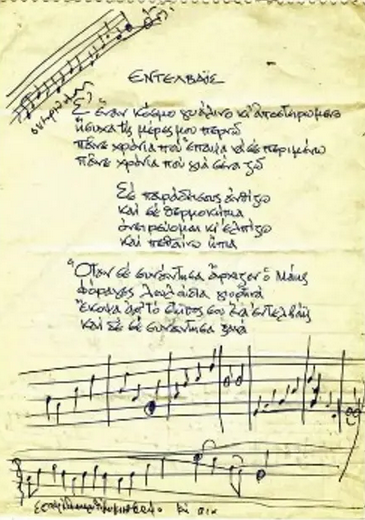 ΕΝΤΕΛΒΑΪΣ
Σ' έναν κόσμο γυάλινο κι αποστειρωμένο
ήσυχα τις μέρες μου περνώ
πάνε χρόνια που έπαψα να σε περιμένω
πάνε χρόνια που για σένα ζω
Σε παράδεισους ανθίζω
και σε θερμοκήπια
ονειρεύομαι κι ελπίζω
και πεθαίνω ήπια
Όταν σε συνάντησα άρχιζεν ο Μάης
φόραγες λουλούδια γιορτινά
έκοψα απ' το στήθος σου ένα εντελβάις
και δε σε συνάντησα ξανά